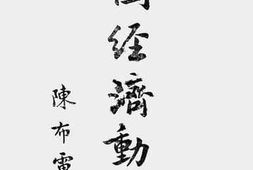 经濟動
陳布雷